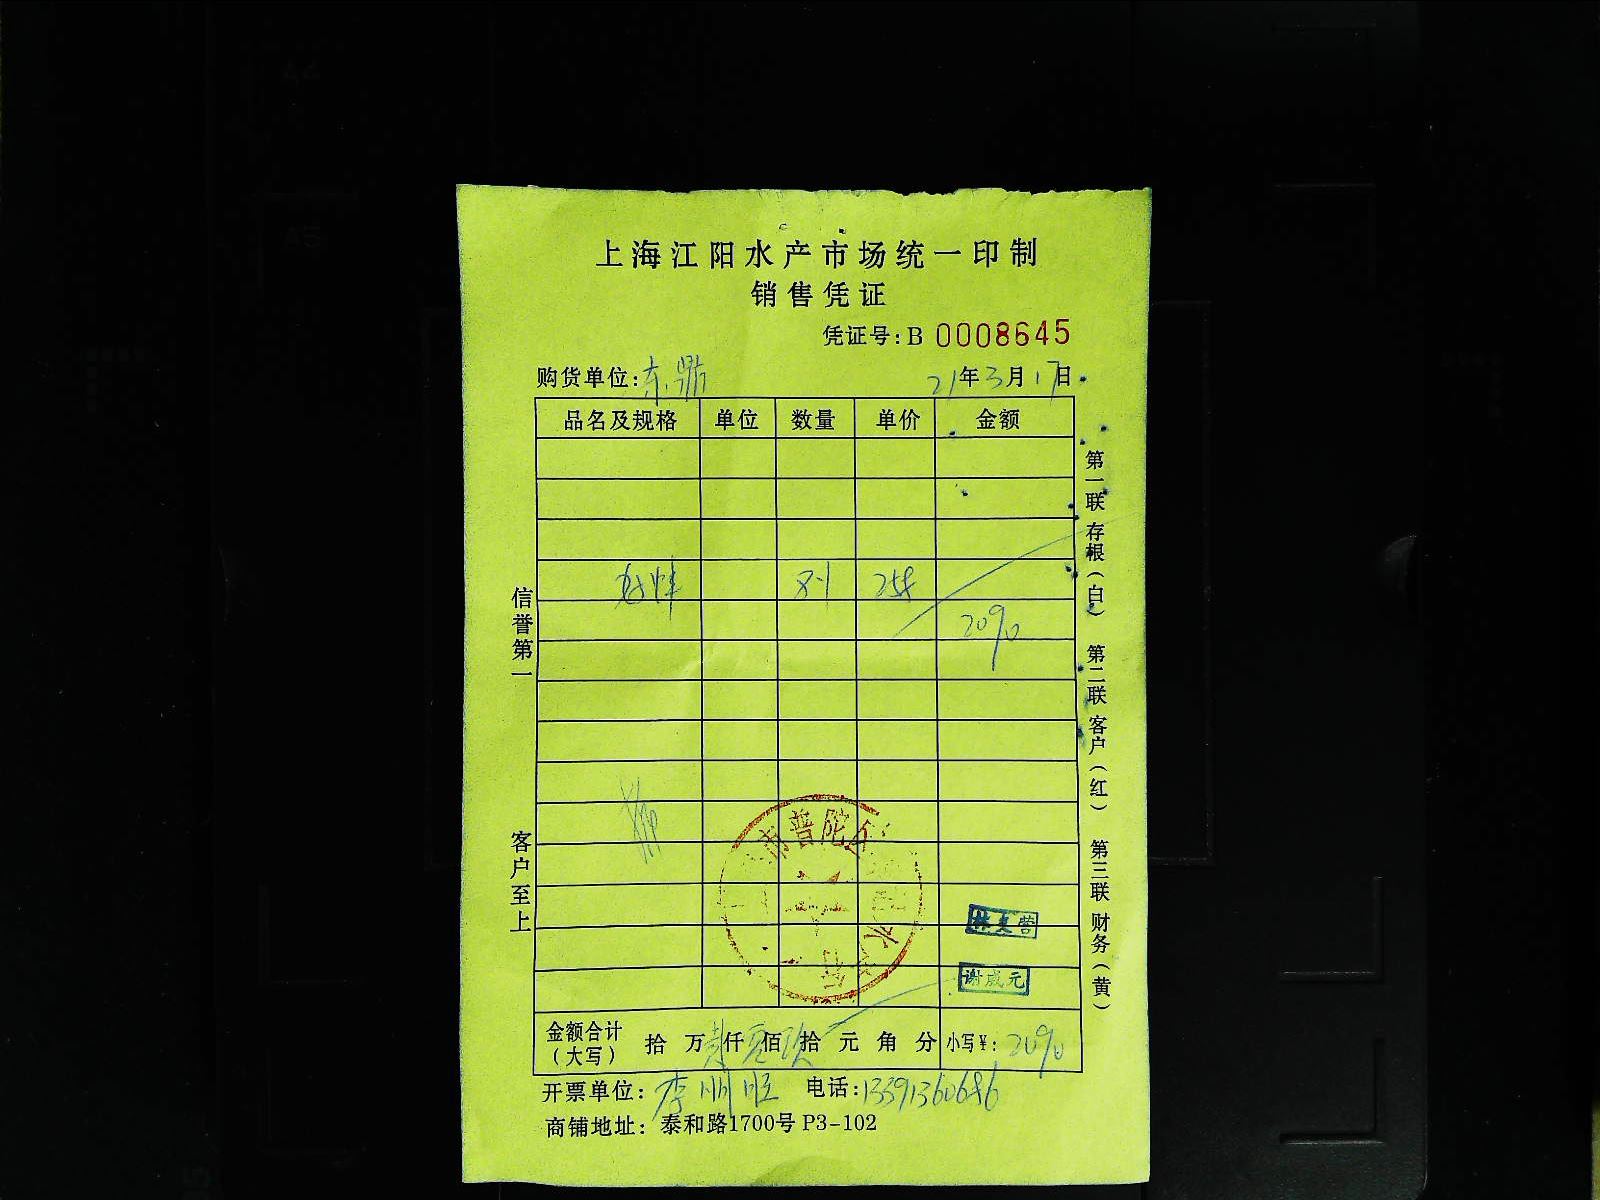 上海江阳水产市场统一印制
销售凭证
凭证号:B 0008645
购货单位:东鼎 21年3月17日
品名及规格 单位 数量 单价 金额
2090
信誉第一
客户至上
第一联 存根(白) 第二联 客户(红) 第三联 财务(黄)
市普陀区
谢成元
金额合计(大写) 拾 万 仟 佰 拾 元 角 分 小写¥: 2090
开票单位:李顺旺 电话:13391360686
商铺地址:泰和路1700号 P3-102